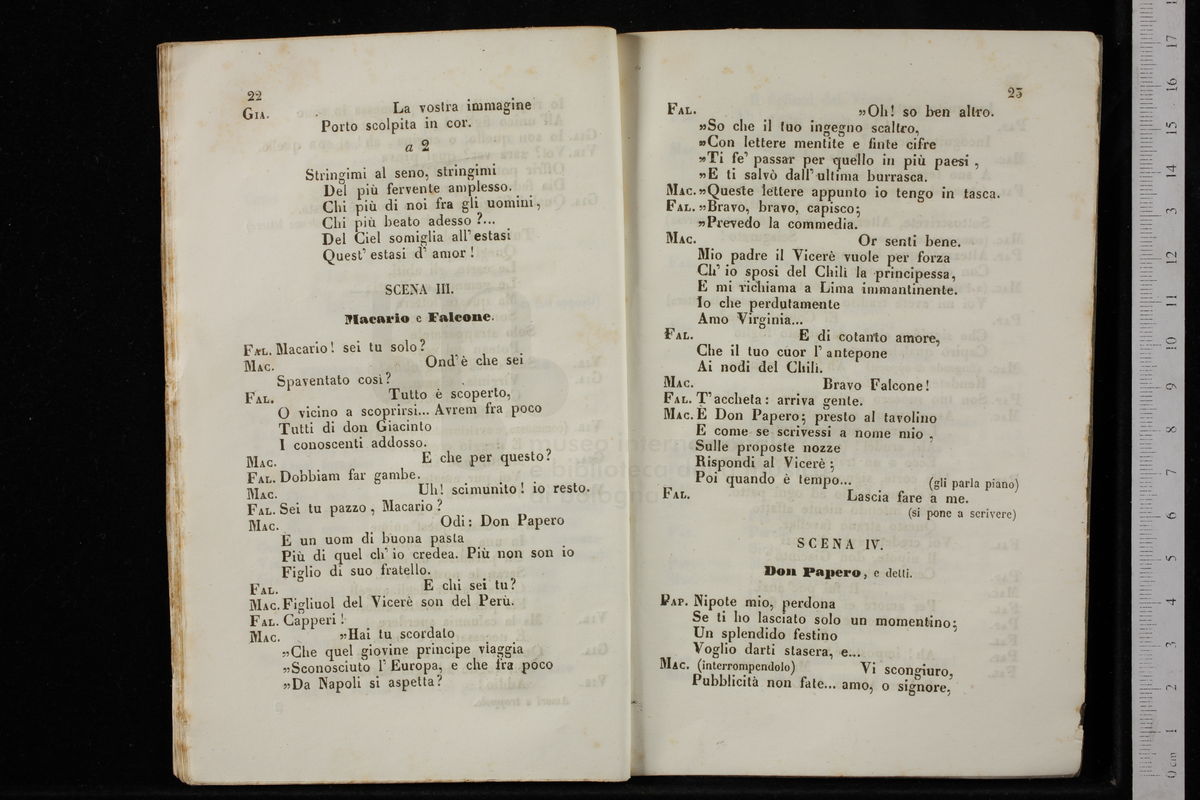 22
GIA. La vostra immagine
Porto scolpita in cor.
a 2
Stringimi al seno, stringimi
Del più fervente amplesso.
Chi più di noi fra gli uomini,
Chi più beato adesso?...
Del Ciel somiglia all' estasi
Quest' estasi d' amor!
SCENA III.
Macario e Falcone.
FAL. Macario! sei tu solo?
MAC. Ond' è che sei
Spaventato così?
FAL. Tutto è scoperto,
O vicino a scoprirsi... Avrem fra poco
Tutti di don Giacinto
I conoscenti addosso.
MAC. E che per questo?
FAL. Dobbiam far gambe.
MAC. Uh! scimunito! io resto.
FAL. Sei tu pazzo, Macario?
MAC. Odi: Don Papero
E un uom di buona pasta
Più di quel ch' io credea. Più non son io
Figlio di suo fratello.
FAL. E chi sei tu?
MAC. Figliuol del Vicerè son del Perù.
FAL. Capperi!
MAC. »Hai tu scordato
»Che quel giovine principe viaggia
»Sconosciuto l' Europa, e che fra poco
»Da Napoli si aspetta?
23
FAL. »Oh! so ben altro.
»So che il tuo ingegno scaltro,
»Con lettere mentite e finte cifre
»Ti fe' passar per quello in più paesi,
»E ti salvò dall' ultima burrasca.
MAC. »Queste lettere appunto io tengo in tasca.
FAL. »Bravo, bravo, capisco;
»Prevedo la commedia.
MAC. Or senti bene.
Mio padre il Vicerè vuole per forza
Ch' io sposi del Chilì la principessa,
E mi richiama a Lima immantinente.
Io che perdutamente
Amo Virginia...
FAL. E di cotanto amore,
Che il tuo cuor l' antepone
Ai nodi del Chilì.
MAC. Bravo Falcone!
FAL. T' accheta: arriva gente.
MAC. È Don Papero; presto al tavolino
E come se scrivessi a nome mio,
Sulle proposte nozze
Rispondi al Vicerè;
Poi quando è tempo... (gli parla piano)
FAL. Lascia fare a me.
(si pone a scrivere)
SCENA IV.
Don Papero, e detti.
PAP. Nipote mio, perdona
Se ti ho lasciato solo un momentino;
Un splendido festino
Voglio darti stasera, e...
MAC. (interrompendolo) Vi scongiuro,
Pubblicità non fate... amo, o signore,